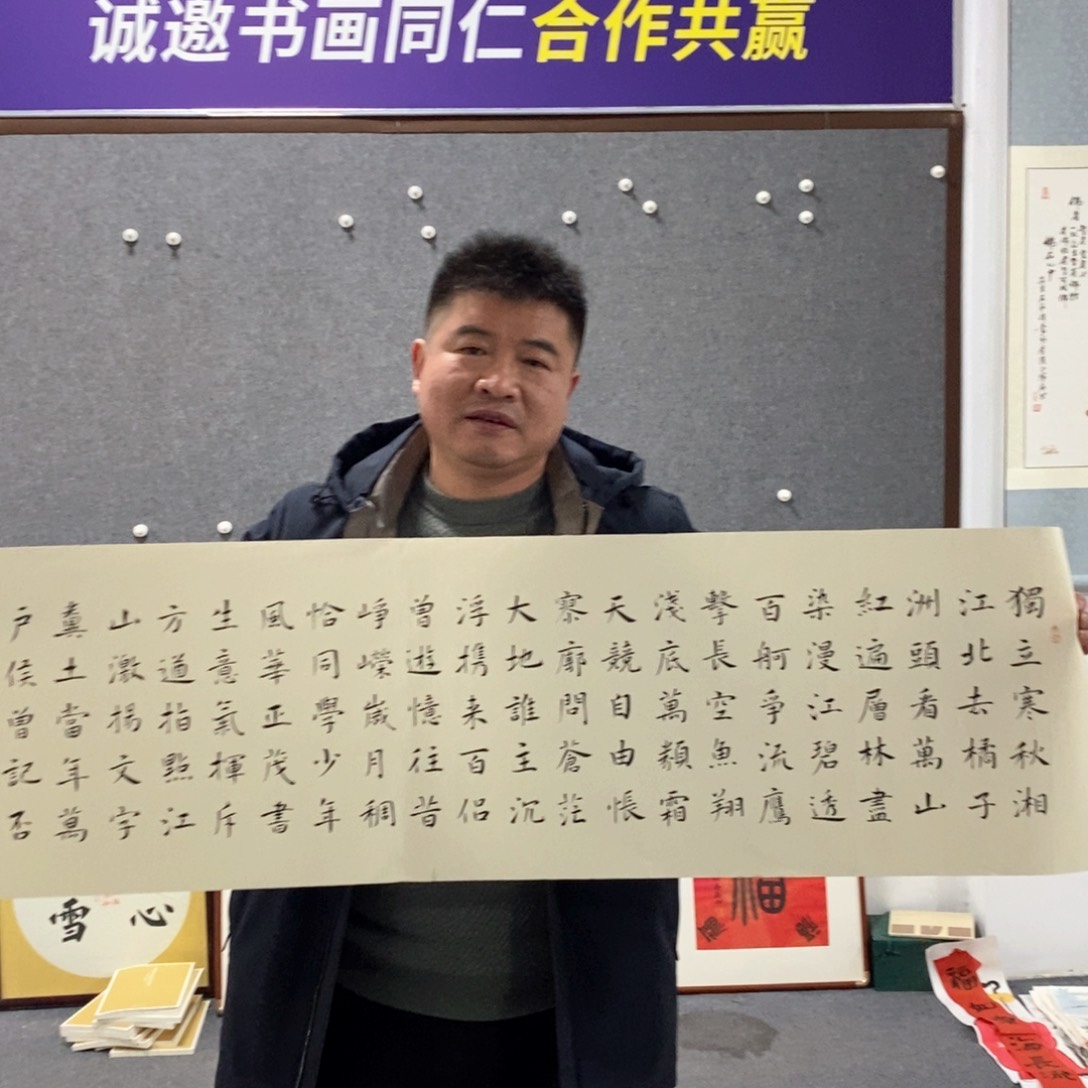 诚邀书画同仁合作共赢
獨立寒秋湘
江北去橘子
洲頭看萬山
紅遍層林盡
染漫江碧透
百舸爭流鷹
擊長空魚翔
淺底萬類霜
天競自由悵
寥廓問蒼茫
大地誰主沉
浮携来百侣
曾遊憶往昔
崢嶸歲月稠
恰同學少年
風華正茂書
生意氣揮斥
方遒指點江
山激揚文字
糞土當年萬
户侯曾記否
雪心
福
福